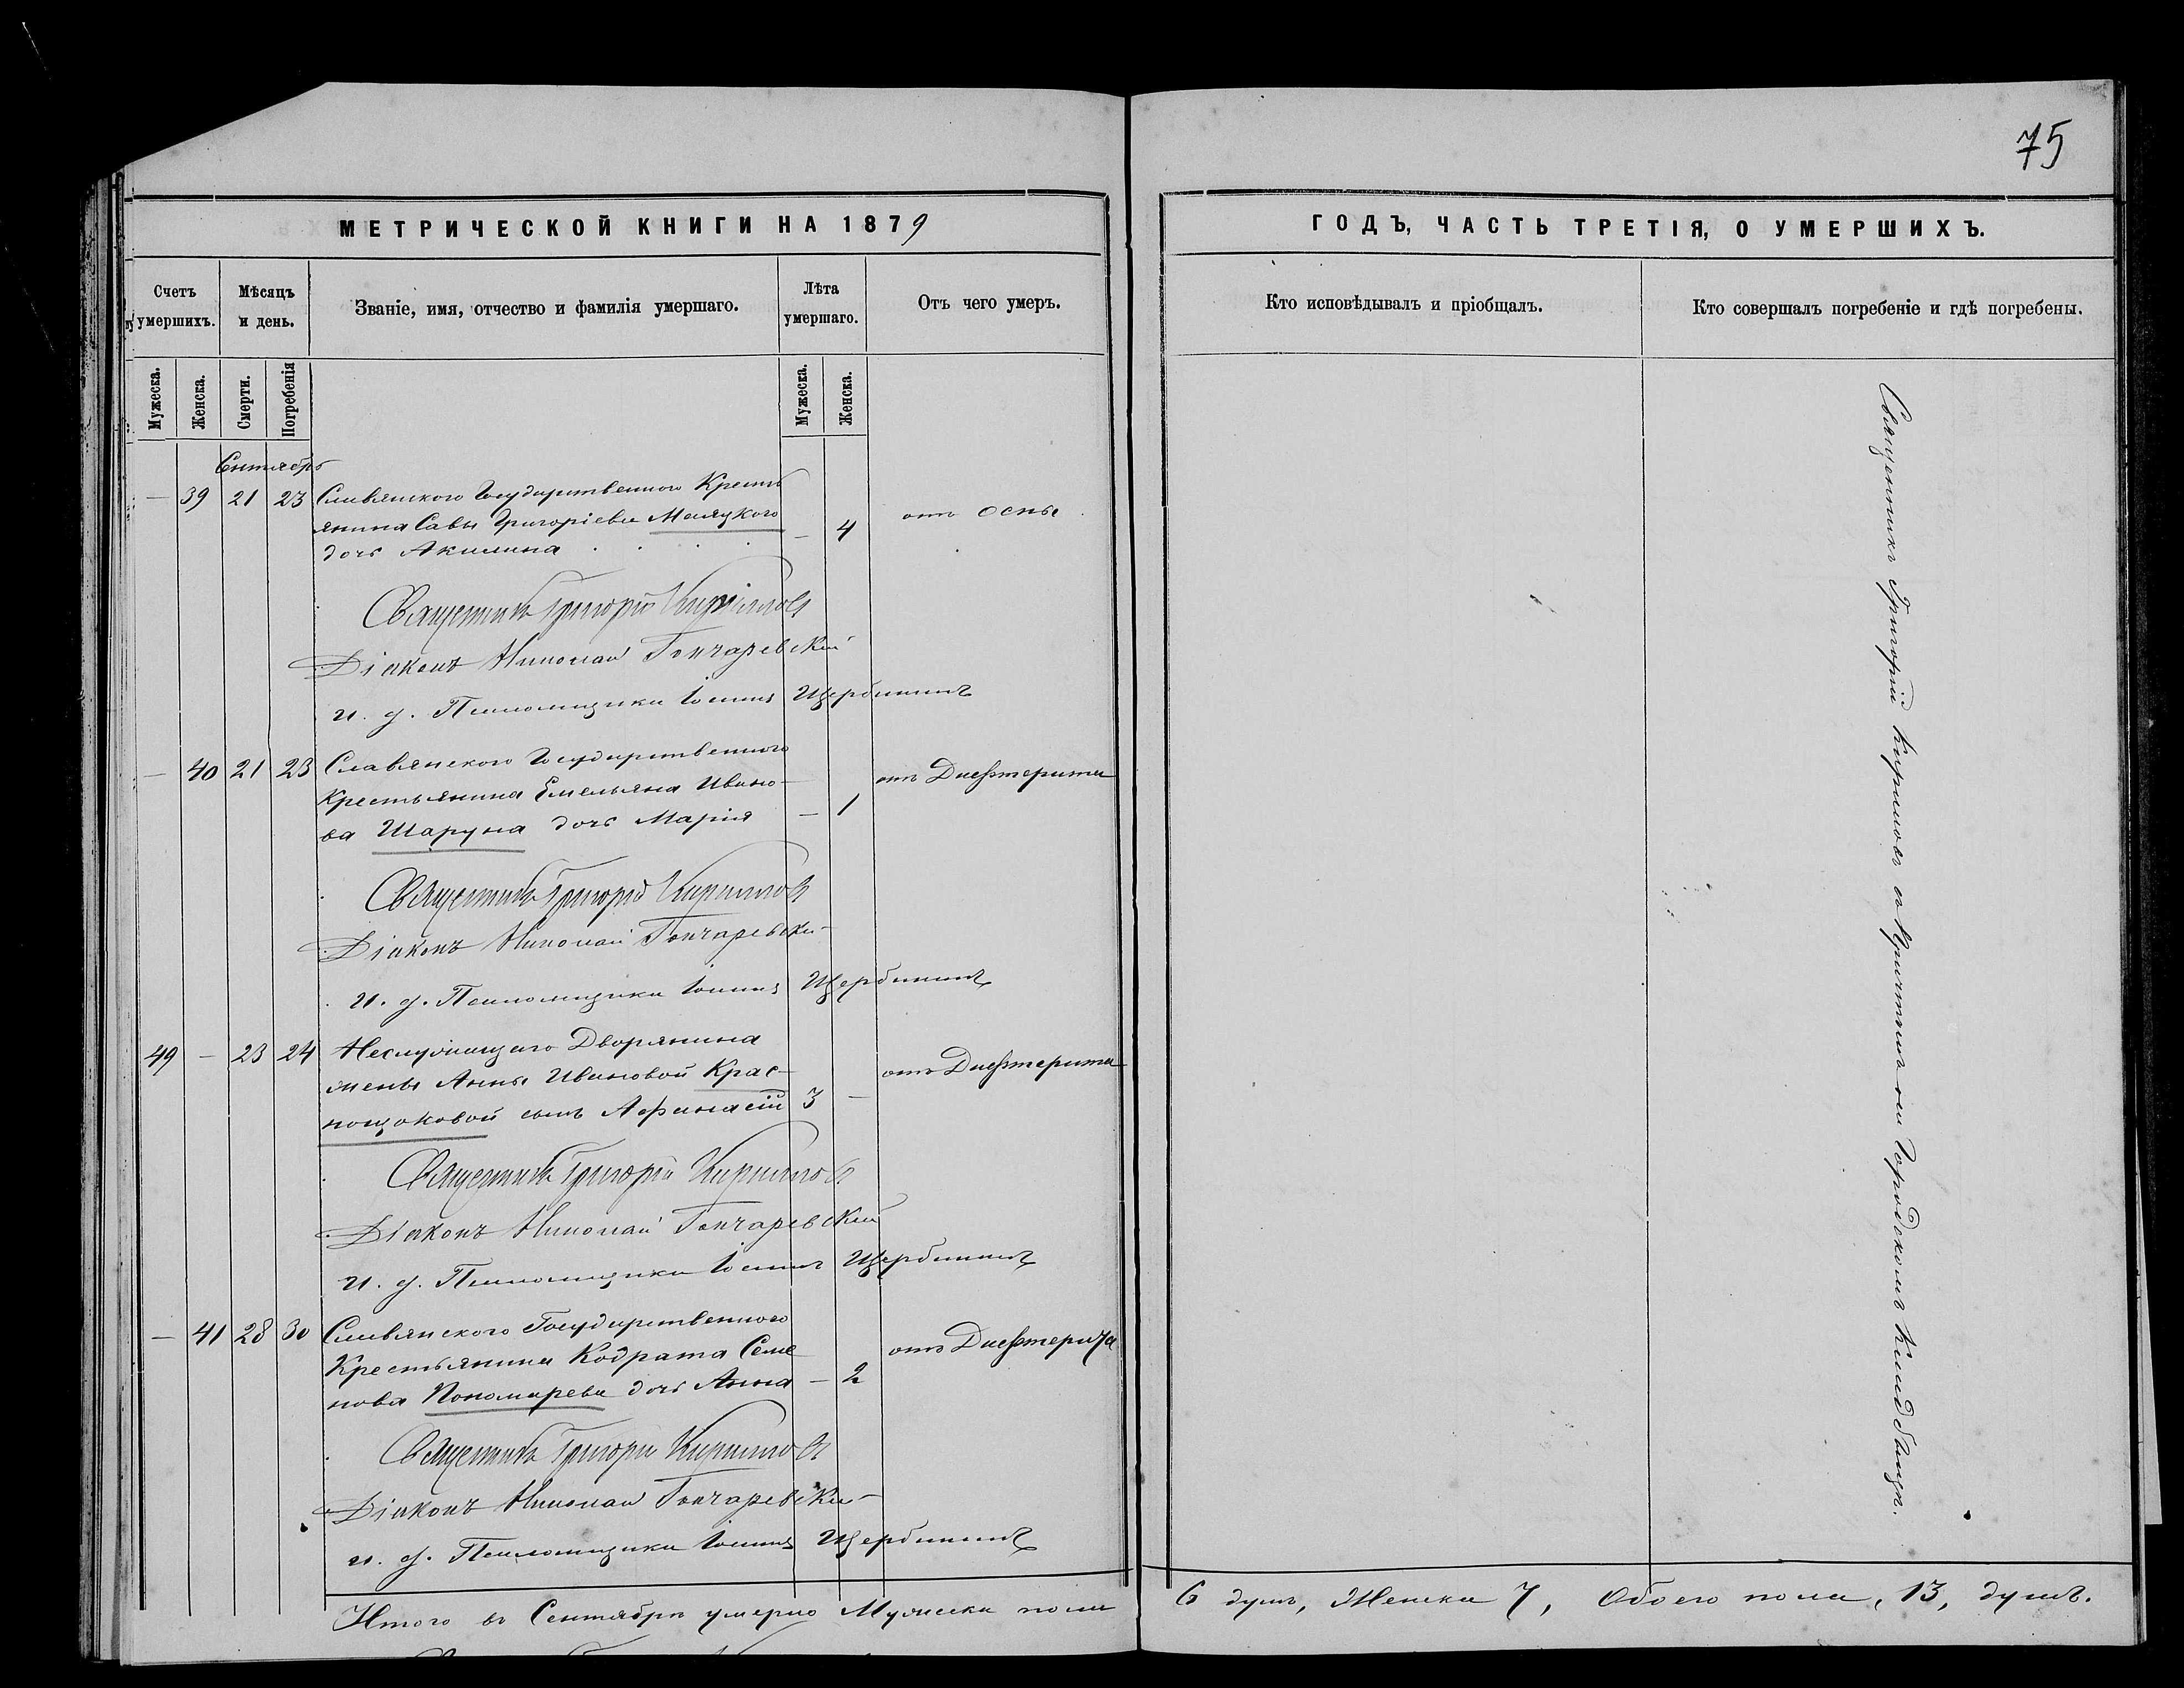 75
МЕТРИЧЕСКОЙ КНИГИ НА 1879
ГОДЪ, ЧАСТЬ ТРЕТІЯ, О УМЕРШИХЪ.
Счетъ умершихъ.
Мѣсяцъ и день.
Званіе, имя, отчество и фамилія умершаго.
Лѣта умершаго.
Отъ чего умеръ.
Кто исповѣдывалъ и пріобщалъ.
Кто совершалъ погребеніе и гдѣ погребены.
Мужеска.
Женска.
Смерти.
Погребенія
Мужеска.
Женска.
Сентябрь
— 39 21 23 Славянского Государственного Кресть
янина Савы Григоріева Маляцкого — 4 отъ оспы
дочь Акилина
Священникъ Григорій Кириловъ
Діаконъ Николай Гончаревскій
и. д. Псаломщика Іоаннъ Щербининъ
— 40 21 23 Славянского Государственного
Крестьянина Емельяна Ивано- — 1 отъ Дисфтерита
ва Шаруна дочь Марія
Священникъ Григорій Кириловъ
Діаконъ Николай Гончаревскій
И. д. Псаломщика Іоаннъ Щербининъ
49 — 23 24 Неслужащаго Дворянина
жены Анны Ивановой Крас- 3 — отъ Дисфтерита
нощоковой сынъ Афанасій
Священникъ Григорій Кириловъ
Діаконъ Николай Гончаревскій
И. д. Псаломщика Іоаннъ Щербининъ
— 41 28 30 Славянского Государственного
Крестьянина Кодрата Семе — 2 отъ Дисфтерита
нова Пономарева дочь Анна
Священникъ Григорій Кириловъ
Діаконъ Николай Гончаревскій
и. д. Псаломщика Іоаннъ Щербининъ
Священникъ Григорій Кириловъ съ причтомъ на Городскомъ кладбищѣ.
Итого въ Сентябрѣ умерло Мужеска пола 6 душъ, Женска 7, Обоего пола, 13, душъ.